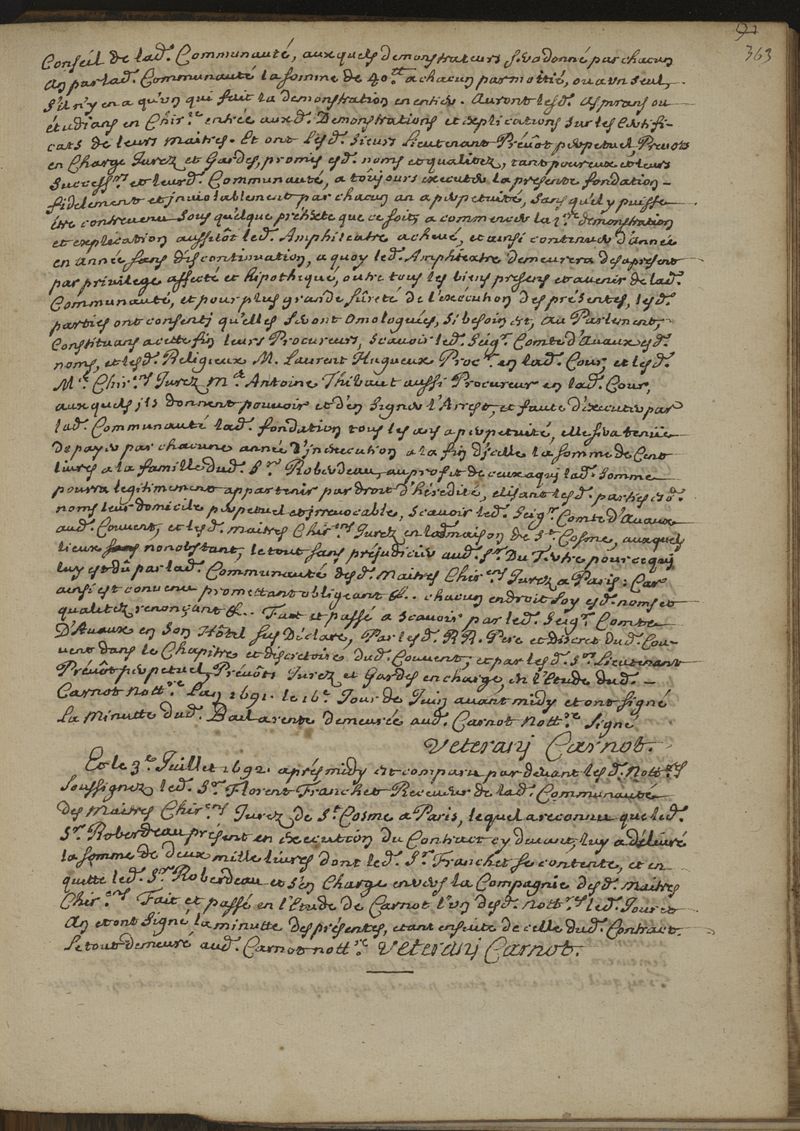 91
363
Conseil de lad.e Communauté, auxquels demonstrateurs sera donné par chacun
an par lad.e Communauté la somme de 40.lt a chacun par moitié, ou a un seul,
s'il n'y en a qu'un qui fait la demonstration en entier. Auront lesd. aspirans ou
étudians en Chir.ie entrée auxd. Demonstrations et explications sur les Certifi-
cats de leurs maitres. Et ont lesd. Sieurs Lieutenant Prévôt perpetuel Prevots
en Charge Jurez et Gardes, promis esd. noms et qualitez, tant pour eux et leurs
Success.rs et leurd. Communauté, a toujours executer la presente fondation
fidelement et inviolablement par chacun an a perpetuité, sans qu'il y puisse
être contrevenu sous quelque prétexte que ce soit, a commencer la 1.re demonstration
et explication aussitôt led. Amphiteatre achevé, et ainsi continuer d'année
en année sans discontinuation, a quoy led. Amphiteatre demeurera des a present
par privilege affecté et hipothequé, outre tous les biens presens et avenir de lad.
Communauté, et pour plus grande sûreté de l'execution des présentes, lesd.
parties ont consenti qu'elles seront omologuées, si besoin est, au Parlement,
Constituans a cette fin leurs Procureurs, Scavoir led. Seig.r Comte d'Avaux esd.
noms, et lesd. Religieux M. Laurent Hugueux Proc.r en lad. Cour, et lesd.
M.es Chir.ens Jurez M.e Antoine Thibaut aussi Procureur en lad. Cour,
auxquels ils donnent pouvoir et d'en signer l'Arrest, et faute d'executer par
lad. Communauté lad. fondation tous les ans a perpetuité, elle sera tenüe
de payer par chacune année d'inexecution a la fin d'icelle la somme de Cent
livres a la famille dud. S.r Roberdeau, au profit de ceux a qui lad. somme
pourra legitimement appartenir par droit d'hérédité, elisant lesd. parties esd.
noms leur domicile perpetuel et irrevocable, Scavoir led. Seig.r Comte d'Avaux
aud. Couvent, et lesd. maitres Chir.ens Jurez en lad maison de S.t Cosme, auxquels
lieux nonobstant, le tout sans préjudicier aud. S.r Du Tertre pour ce qui
luy est dû par lad. Communauté desd. Maitres Chir.ens Jurez a Paris: Car
ainsi est convenu promettant obligeant &.. chacun endroit soy esd. noms et
qualitez renonçant &.. Fait et passé a Scavoir par led. Seig.r Comte
D'Avaux en son Hôtel sus Déclaré, Par lesd. RR. Pere et discret dud. Cou-
vent dans le Chapitre et discretoire dud. Couvent, et par lesd. S.rs Lieutenant
Prévôt perpetuel, Prévôts Jurez et Gardes en charge, en l'Etude dud.
Carnot Nott.re Lan 1691. le 16.e Jour de Juin avant midy et ont signé
La Minutte dud. demeurée aud. Carnot Nott.re Signé
Veterani Carnot.
Et le 3.e Juillet 1692. aprés midy est comparu par devant lesd. Nott.res
soussignez led. S.r Florent Franchet Receveur de lad. Communauté
des Maitres Chir.ens Jurez de S.t Cosme a Paris, lequel a reconnu que led.
S.r Roberdeau présent en execution du Contract cy devant, luy a délivré
la somme de deux mille livres dont led. S.r Franchet se contente, et en
quitte led. S.r Roberdeau et s'en Charge envers la Compagnie desd. Maitres
Chir.ens Fait et passé en l'Etude de Carnot l'un desd. Nott.res led. Jour et
an et ont signé la minutte des présentes, etant ensuite de celle dud. Contract.
Le tout demeuré aud. Carnot nott.re Veterani Carnot.